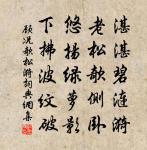 湛湛碧漣漪
老松欹側臥
悠揚綠蘿影
下拂波紋破
顧況欹松漪詞典網集